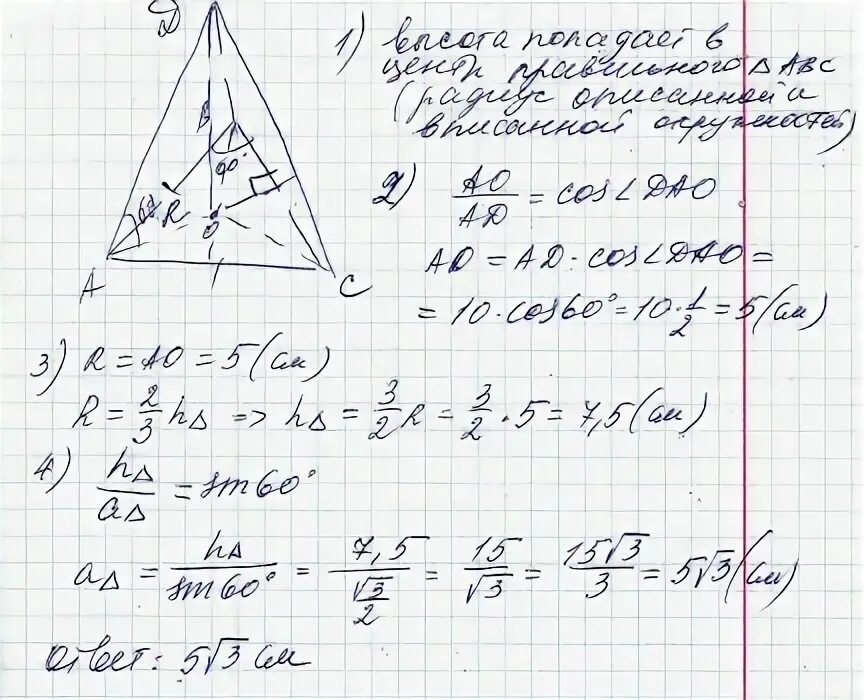 D
B
90°
60°
R
O
A
C
1) высота попадает в
центр правильного Δ ABC
(радиус описанной и
вписанной окружностей)
2) AO/AD = cos∠DAO
AO = AD · cos∠DAO =
= 10 · cos60° = 10 · 1/2 = 5 (см)
3) R = AO = 5 (см)
R = 2/3 hΔ => hΔ = 3/2 R = 3/2 · 5 = 7,5 (см)
4) hΔ/aΔ = sin60°
aΔ = hΔ/sin60° = 7,5/(√3/2) = 15/√3 = 15√3/3 = 5√3 (см)
Ответ: 5√3 см